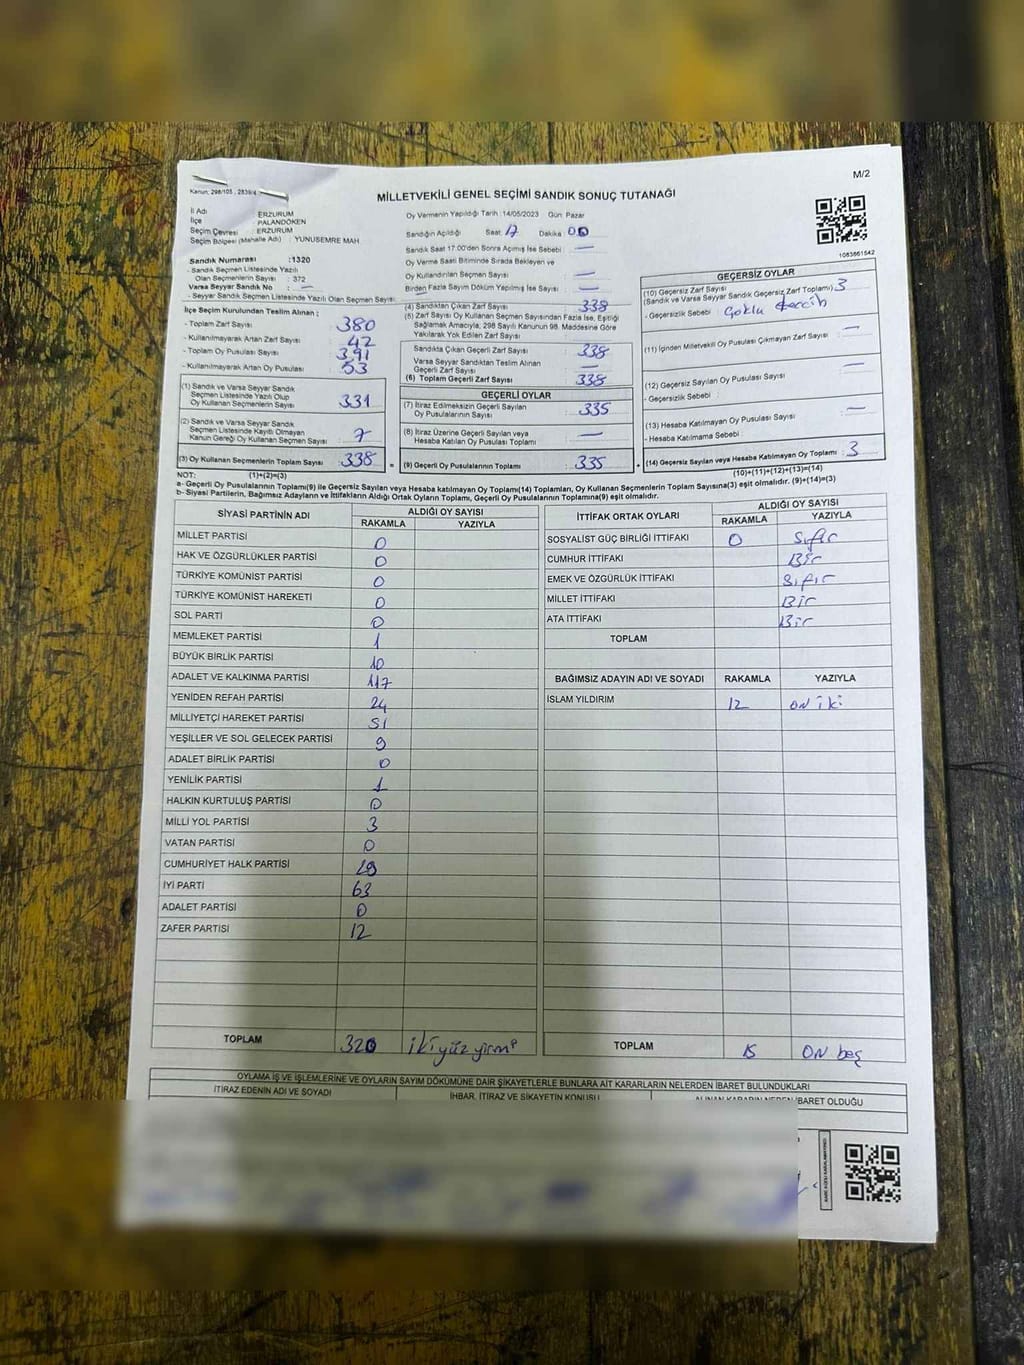 M/2
Kanun: 298/105 , 2839/4
MİLLETVEKİLİ GENEL SEÇİMİ SANDIK SONUÇ TUTANAĞI
İl Adı ERZURUM
İlçe PALANDÖKEN
Seçim Çevresi ERZURUM
Seçim Bölgesi (Mahalle Adı) : YUNUSEMRE MAH
Oy Vermenin Yapıldığı Tarih :14/05/2023 Gün: Pazar
Sandığın Açıldığı Saat 17 Dakika 00
Sandık Saat 17.00'den Sonra Açılmış İse Sebebi : —
Oy Verme Saati Bitiminde Sırada Bekleyen ve
Oy Kullandırılan Seçmen Sayısı : —
Birden Fazla Sayım Döküm Yapılmış İse Sayısı : —
1083661542
Sandık Numarası :1320
- Sandık Seçmen Listesinde Yazılı
Olan Seçmenlerin Sayısı : 372
Varsa Seyyar Sandık No : —
- Seyyar Sandık Seçmen Listesinde Yazılı Olan Seçmen Sayısı:
İlçe Seçim Kurulundan Teslim Alınan ;
- Toplam Zarf Sayısı : 380
- Kullanılmayarak Artan Zarf Sayısı : 42
- Toplam Oy Pusulası Sayısı : 391
- Kullanılmayarak Artan Oy Pusulası : 53
(1) Sandık ve Varsa Seyyar Sandık
Seçmen Listesinde Yazılı Olup
Oy Kullanan Seçmenlerin Sayısı : 331
(2) Sandık ve Varsa Seyyar Sandık
Seçmen Listesinde Kayıtlı Olmayan
Kanun Gereği Oy Kullanan Seçmen Sayısı : 7
(3) Oy Kullanan Seçmenlerin Toplam Sayısı : 338
(4) Sandıktan Çıkan Zarf Sayısı : 338
(5) Zarf Sayısı Oy Kullanan Seçmen Sayısından Fazla İse, Eşitliği
Sağlamak Amacıyla, 298 Sayılı Kanunun 98. Maddesine Göre
Yakılarak Yok Edilen Zarf Sayısı :
Sandıkta Çıkan Geçerli Zarf Sayısı : 338
Varsa Seyyar Sandıktan Teslim Alınan
Geçerli Zarf Sayısı : —
(6) Toplam Geçerli Zarf Sayısı : 338
GEÇERLİ OYLAR
(7) İtiraz Edilmeksizin Geçerli Sayılan
Oy Pusulalarının Sayısı : 335
(8) İtiraz Üzerine Geçerli Sayılan veya
Hesaba Katılan Oy Pusulası Toplamı : —
= (9) Geçerli Oy Pusulalarının Toplamı : 335
GEÇERSİZ OYLAR
(10) Geçersiz Zarf Sayısı
(Sandık ve Varsa Seyyar Sandık Geçersiz Zarf Toplamı) 3
- Geçersizlik Sebebi : Çoklu tercih
(11) İçinden Milletvekili Oy Pusulası Çıkmayan Zarf Sayısı: —
(12) Geçersiz Sayılan Oy Pusulası Sayısı : —
- Geçersizlik Sebebi :
(13) Hesaba Katılmayan Oy Pusulası Sayısı : —
- Hesaba Katılmama Sebebi :
+ (14) Geçersiz Sayılan veya Hesaba Katılmayan Oy Toplamı : 3
NOT: (1)+(2)=(3) (10)+(11)+(12)+(13)=(14)
a- Geçerli Oy Pusulalarının Toplamı(9) ile Geçersiz Sayılan veya Hesaba katılmayan Oy Toplamı(14) Toplamları, Oy Kullanan Seçmenlerin Toplam Sayısına(3) eşit olmalıdır. (9)+(14)=(3)
b- Siyasi Partilerin, Bağımsız Adayların ve İttifakların Aldığı Ortak Oyların Toplamı, Geçerli Oy Pusulalarının Toplamına(9) eşit olmalıdır.
SİYASİ PARTİNİN ADI ALDIĞI OY SAYISI
RAKAMLA YAZIYLA
MİLLET PARTİSİ 0
HAK VE ÖZGÜRLÜKLER PARTİSİ 0
TÜRKİYE KOMÜNİST PARTİSİ 0
TÜRKİYE KOMÜNİST HAREKETİ 0
SOL PARTİ 0
MEMLEKET PARTİSİ 1
BÜYÜK BİRLİK PARTİSİ 10
ADALET VE KALKINMA PARTİSİ 117
YENİDEN REFAH PARTİSİ 24
MİLLİYETÇİ HAREKET PARTİSİ 51
YEŞİLLER VE SOL GELECEK PARTİSİ 9
ADALET BİRLİK PARTİSİ 0
YENİLİK PARTİSİ 1
HALKIN KURTULUŞ PARTİSİ 0
MİLLİ YOL PARTİSİ 3
VATAN PARTİSİ 0
CUMHURİYET HALK PARTİSİ 29
İYİ PARTİ 63
ADALET PARTİSİ 0
ZAFER PARTİSİ 12
TOPLAM 320 ikiyüz yirmi
İTTİFAK ORTAK OYLARI ALDIĞI OY SAYISI
RAKAMLA YAZIYLA
SOSYALİST GÜÇ BİRLİĞİ İTTİFAKI 0 Sıfır
CUMHUR İTTİFAKI Bir
EMEK VE ÖZGÜRLÜK İTTİFAKI Sıfır
MİLLET İTTİFAKI Bir
ATA İTTİFAKI Bir
TOPLAM
BAĞIMSIZ ADAYIN ADI VE SOYADI RAKAMLA YAZIYLA
İSLAM YILDIRIM 12 on iki
TOPLAM 15 ON beş
OYLAMA İŞ VE İŞLEMLERİNE VE OYLARIN SAYIM DÖKÜMÜNE DAİR ŞİKAYETLERLE BUNLARA AİT KARARLARIN NELERDEN İBARET BULUNDUKLARI
İTİRAZ EDENİN ADI VE SOYADI İHBAR, İTİRAZ VE ŞİKAYETİN KONUSU ALINAN KARARIN NEDEN İBARET OLDUĞU